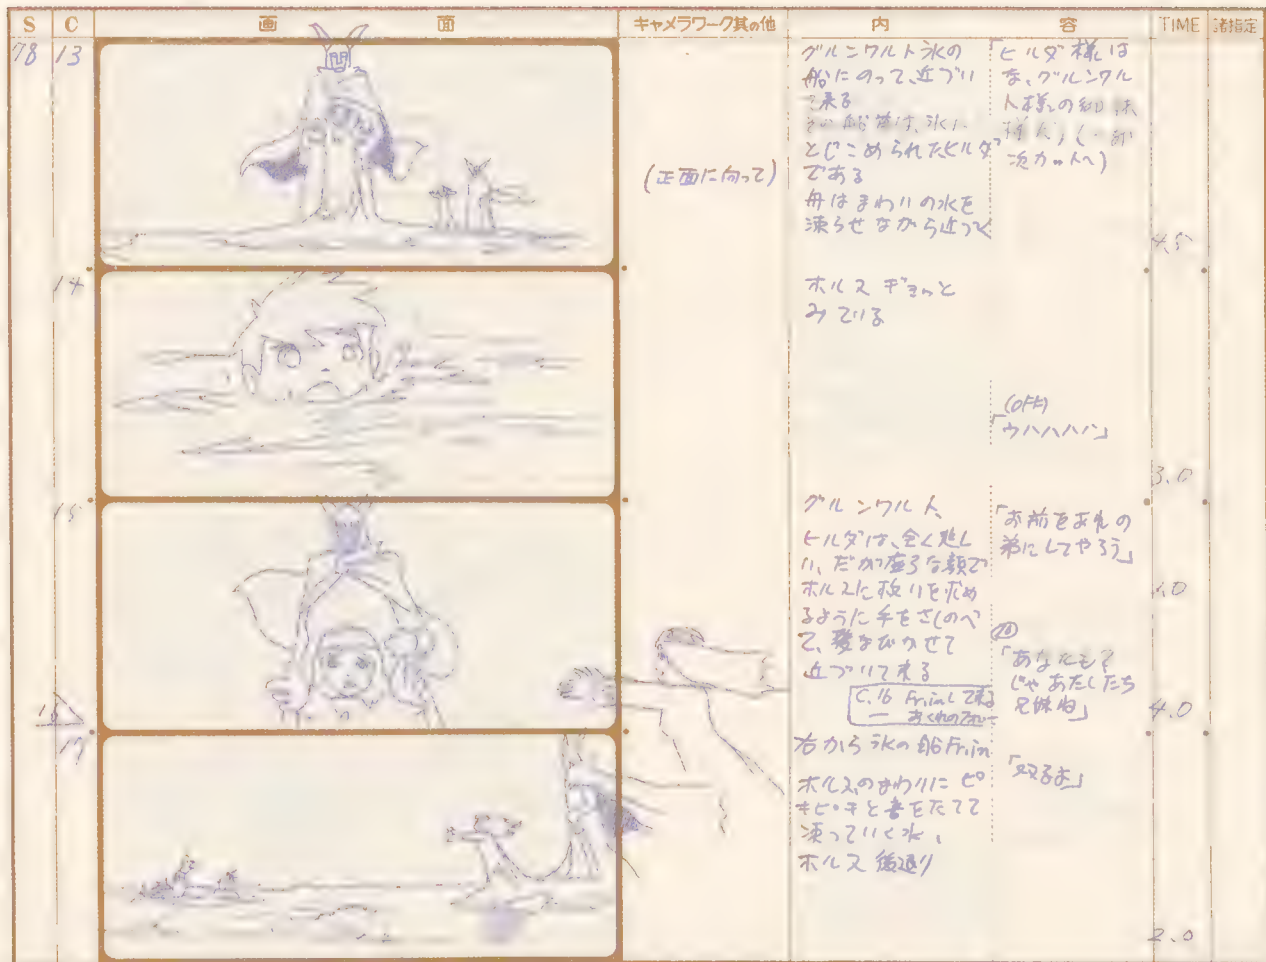 S C 画 面 キャメラワーク其の他 内 容 TIME 諸指定
78 13
(正面に向って)
グルンワルト氷の
船にのって、近づい
て来る
とじこめられたヒルダ
である
舟はまわりの水を
凍らせながら近づく
「ヒルダ様は
な、グルンワル
ト様の
次カットへ)
4.5
14
ホルス ギョッと
みている
(OFF)
「ウハハハハ」
3.0
15
グルンワルト、
ヒルダは、全く悲し
い、だが
ホルスに救いを求め
るように手をさしのべ
て、髪なびかせて
近づいて来る
C.16 Fr.inして来る
「お前をあれの
弟にしてやろう」
「あなたも?
じゃあたしたち
兄妹ね」
4.0
16
17
右から氷の船Fr.in
ホルスのまわりにピ
キピキと音をたてて
凍っていく水、
ホルス後退り
2.0